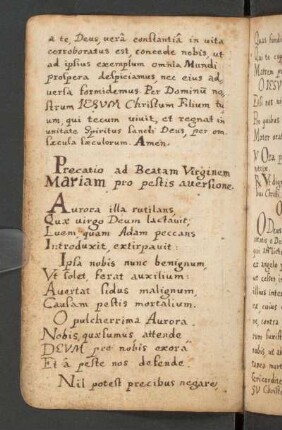 a te, Deus, verâ constantiâ in vita
corroboratus est, concede nobis, ut
ad ipsius exemplum omnia Mundi
prospera despiciamus, nec eius ad-
versa formidemus. Per Dominū no-
strum IESVM Christum Filium tu-
um, qui tecum uiuit, et regnat in
unitate Spiritus Sancti Deus, per om
sæcula sæculorum. Amen.
Precatio ad Beatam Virginem
Mariam pro pestis aversione.
Aurora illa rutilans
Quæ uirgo Deum lactauit,
Luem, quam Adam peccans
Introduxit, extirpauit:
Ipsa nobis nunc benignum,
Vt solet, ferat auxilium:
Auertat sidus malignum,
Causam pestis mortalium.
O pulcherrima Aurora
Nobis, quæsumus, attende
DEVM pro nobis exora
Et à peste nos defende.
Nil potest precibus negare